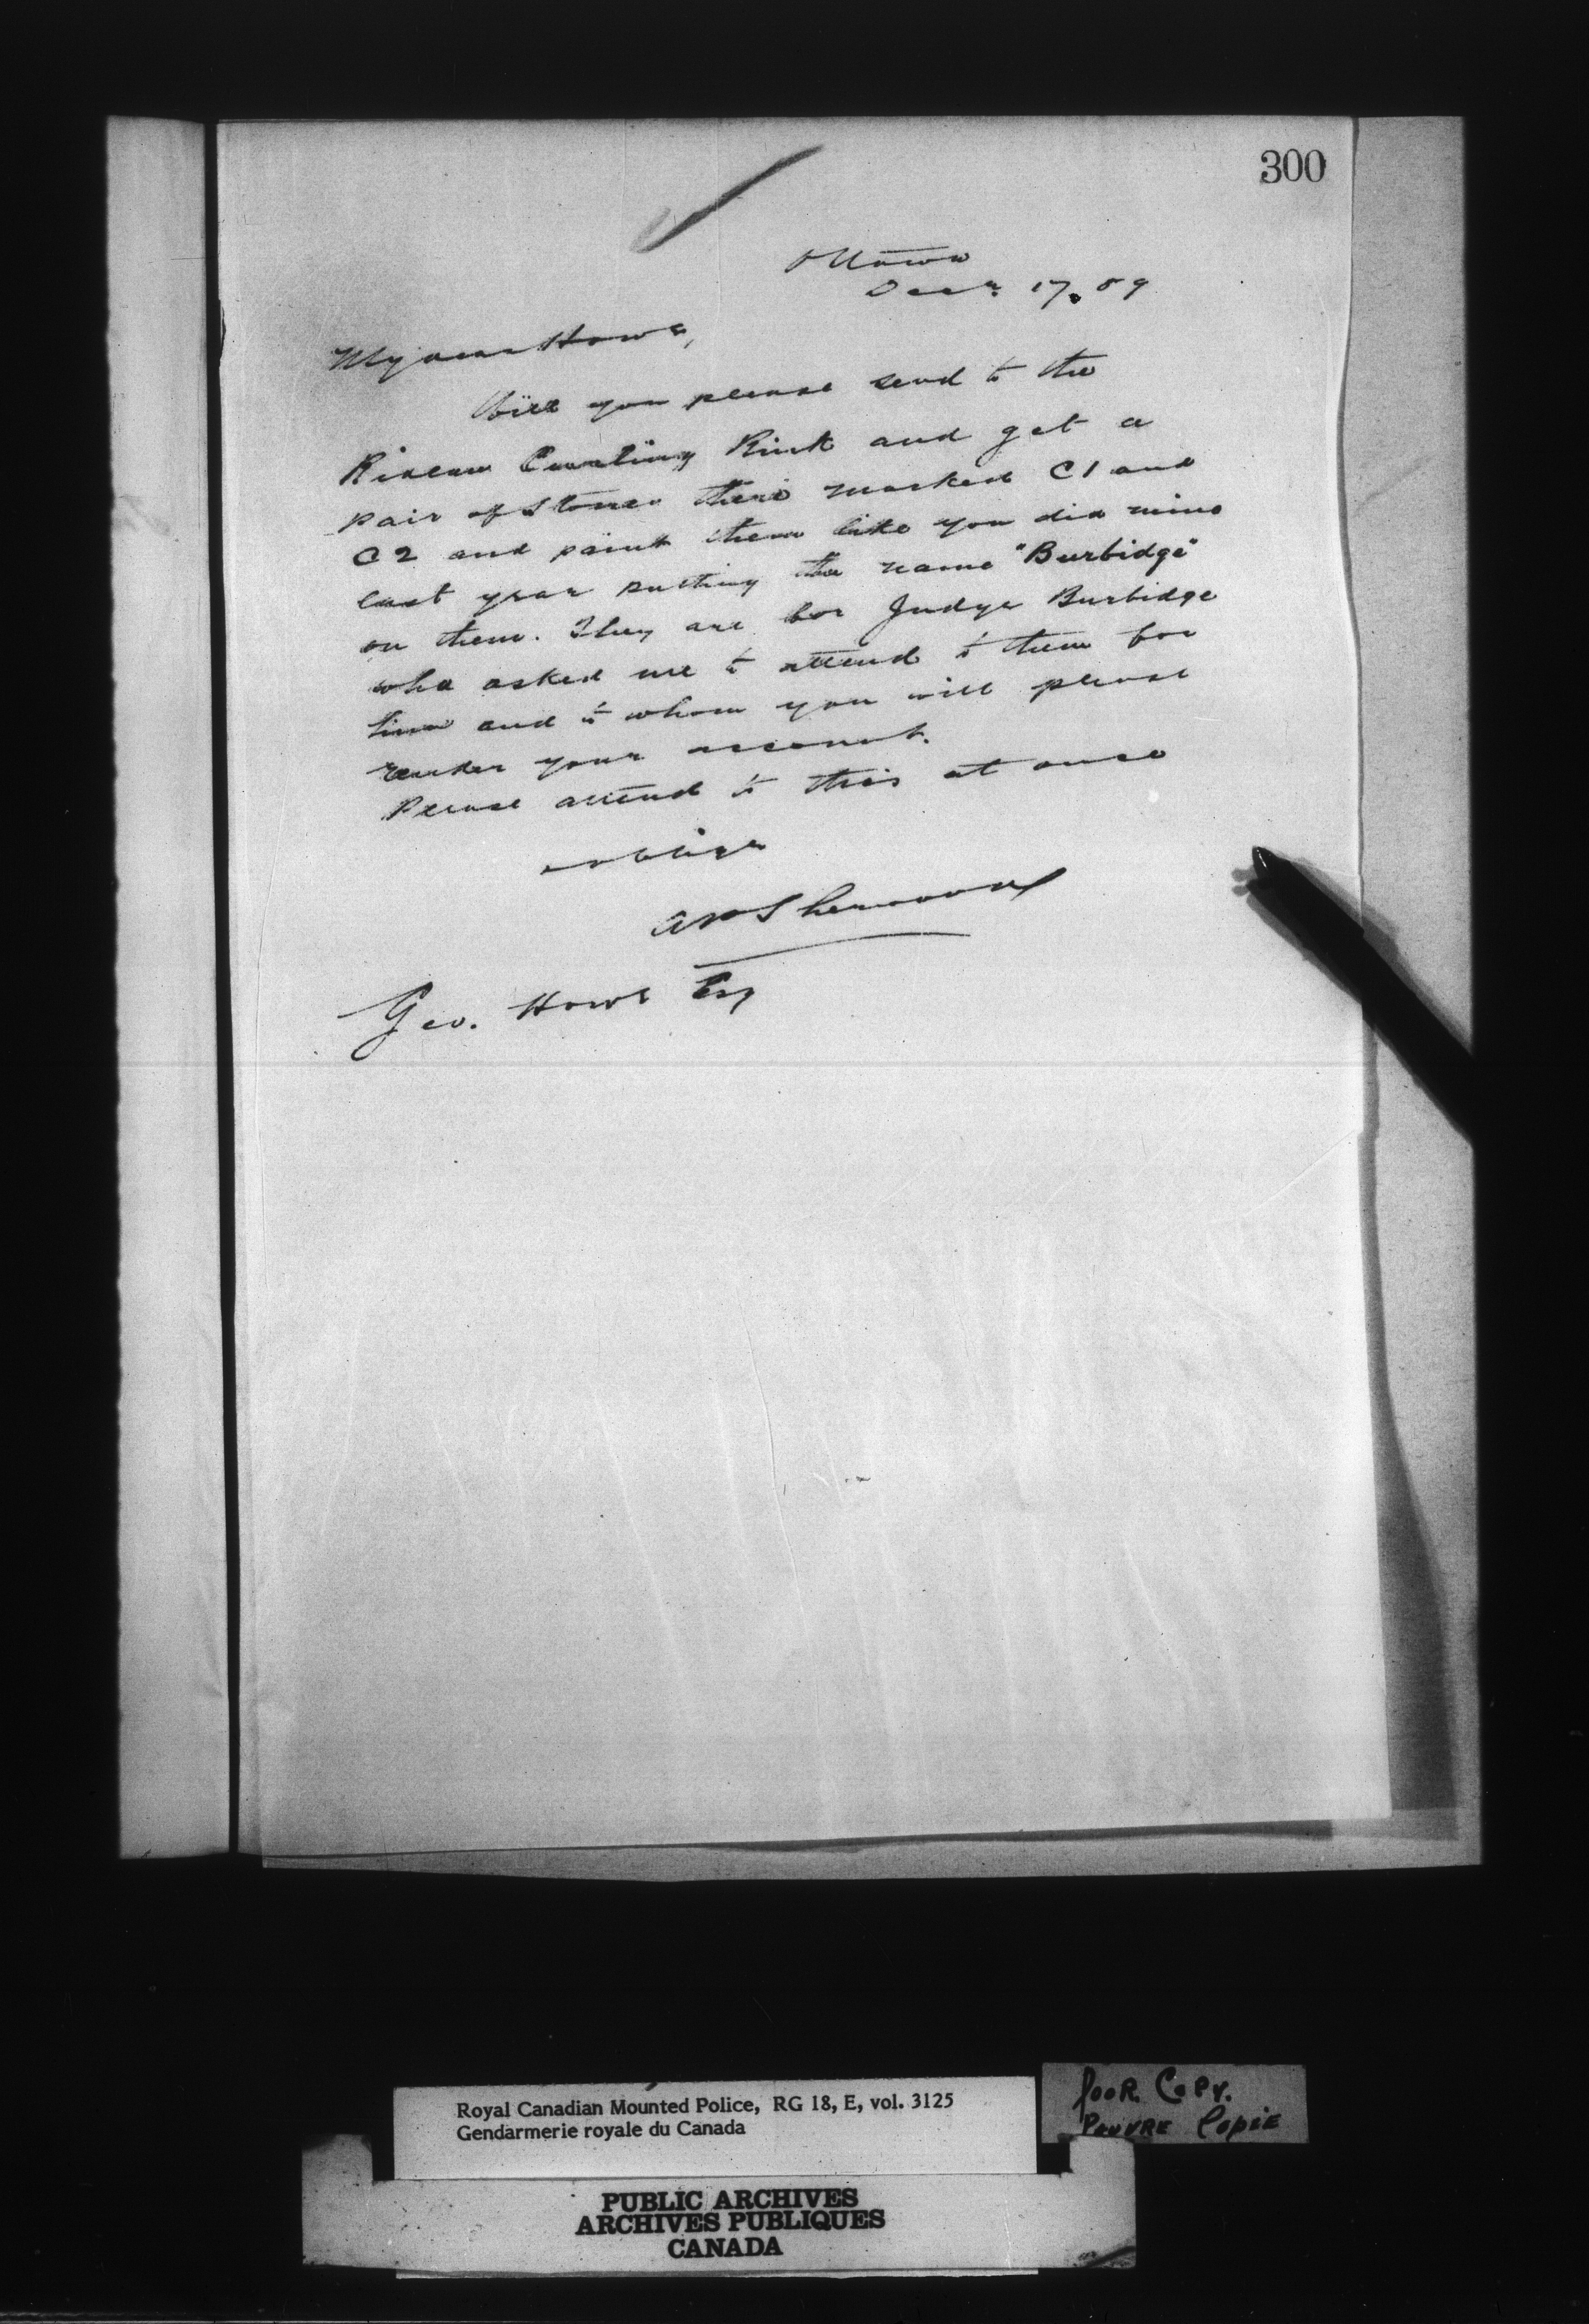 300
Ottawa
Decr. 17. 89
My dear Howe,
Will you please send to the
Rideau Curling Rink and get a
pair of Stones there marked C1 and
C2 and paint them like you did mine
last year putting the name "Burbidge"
on them. They are for Judge Burbidge
who asked me to attend to them for
him and to whom you will please
render your account.
Please attend to this at once
& oblige
APSherwood
Geo. Howe Esq
Royal Canadian Mounted Police, RG 18, E, vol. 3125
Gendarmerie royale du Canada
POOR COPY.
PAUVRE COPIE
PUBLIC ARCHIVES
ARCHIVES PUBLIQUES
CANADA